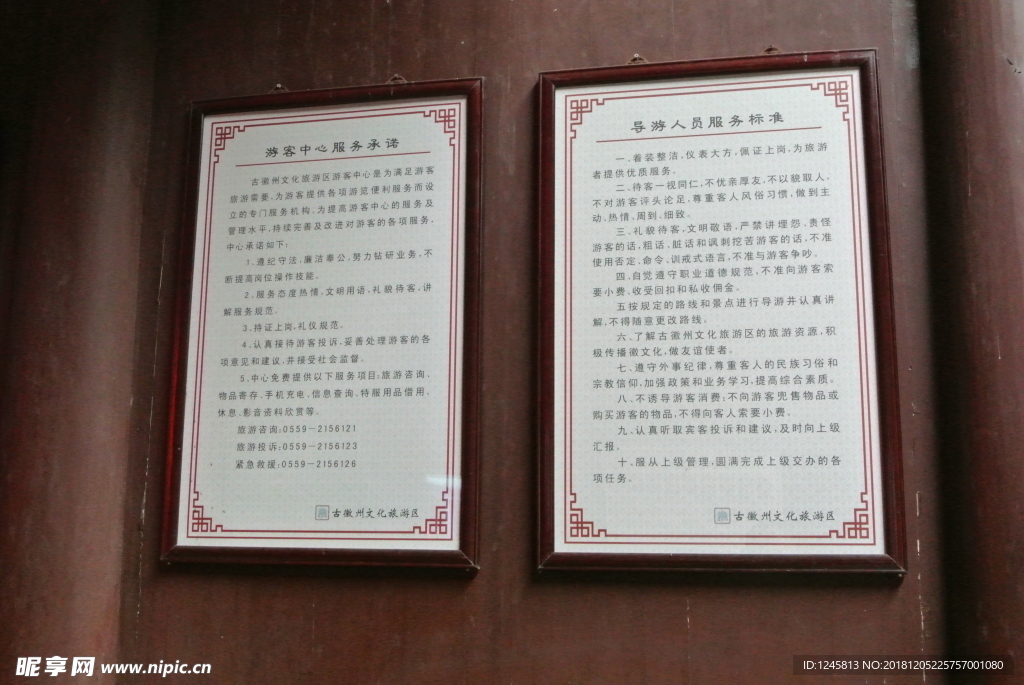 游客中心服务承诺
古徽州文化旅游区游客中心是为满足游客
旅游需要,为游客提供各项游览便利服务而设
立的专门服务机构,为提高游客中心的服务及
管理水平,持续完善及改进对游客的各项服务,
中心承诺如下:
1.遵纪守法,廉洁奉公,努力钻研业务,不
断提高岗位操作技能。
2.服务态度热情,文明用语,礼貌待客,讲
解服务规范。
3.持证上岗,礼仪规范。
4.认真接待游客投诉,妥善处理游客的各
项意见和建议,并接受社会监督。
5.中心免费提供以下服务项目:旅游咨询、
物品寄存、手机充电、信息查询、特服用品借用、
休息、影音资料欣赏等。
旅游咨询:0559-2156121
旅游投诉:0559-2156123
紧急救援:0559-2156126
古徽州文化旅游区
导游人员服务标准
一、着装整洁,仪表大方,佩证上岗,为旅游
者提供优质服务。
二、待客一视同仁,不优亲厚友,不以貌取人,
不对游客评头论足,尊重客人风俗习惯,做到主
动、热情、周到、细致。
三、礼貌待客,文明敬语,严禁讲埋怨、责怪
游客的话,粗话、脏话和讽刺挖苦游客的话,不准
使用否定、命令、训戒式语言,不准与游客争吵。
四、自觉遵守职业道德规范,不准向游客索
要小费、收受回扣和私收佣金。
五按规定的路线和景点进行导游并认真讲
解,不得随意更改路线。
六、了解古徽州文化旅游区的旅游资源,积
极传播徽文化,做友谊使者。
七、遵守外事纪律,尊重客人的民族习俗和
宗教信仰,加强政策和业务学习,提高综合素质。
八、不诱导游客消费;不向游客兜售物品或
购买游客的物品,不得向客人索要小费。
九、认真听取宾客投诉和建议,及时向上级
汇报。
十、服从上级管理,圆满完成上级交办的各
项任务。
古徽州文化旅游区
昵享网 www.nipic.cn
ID:1245813 NO:20181205225757001080